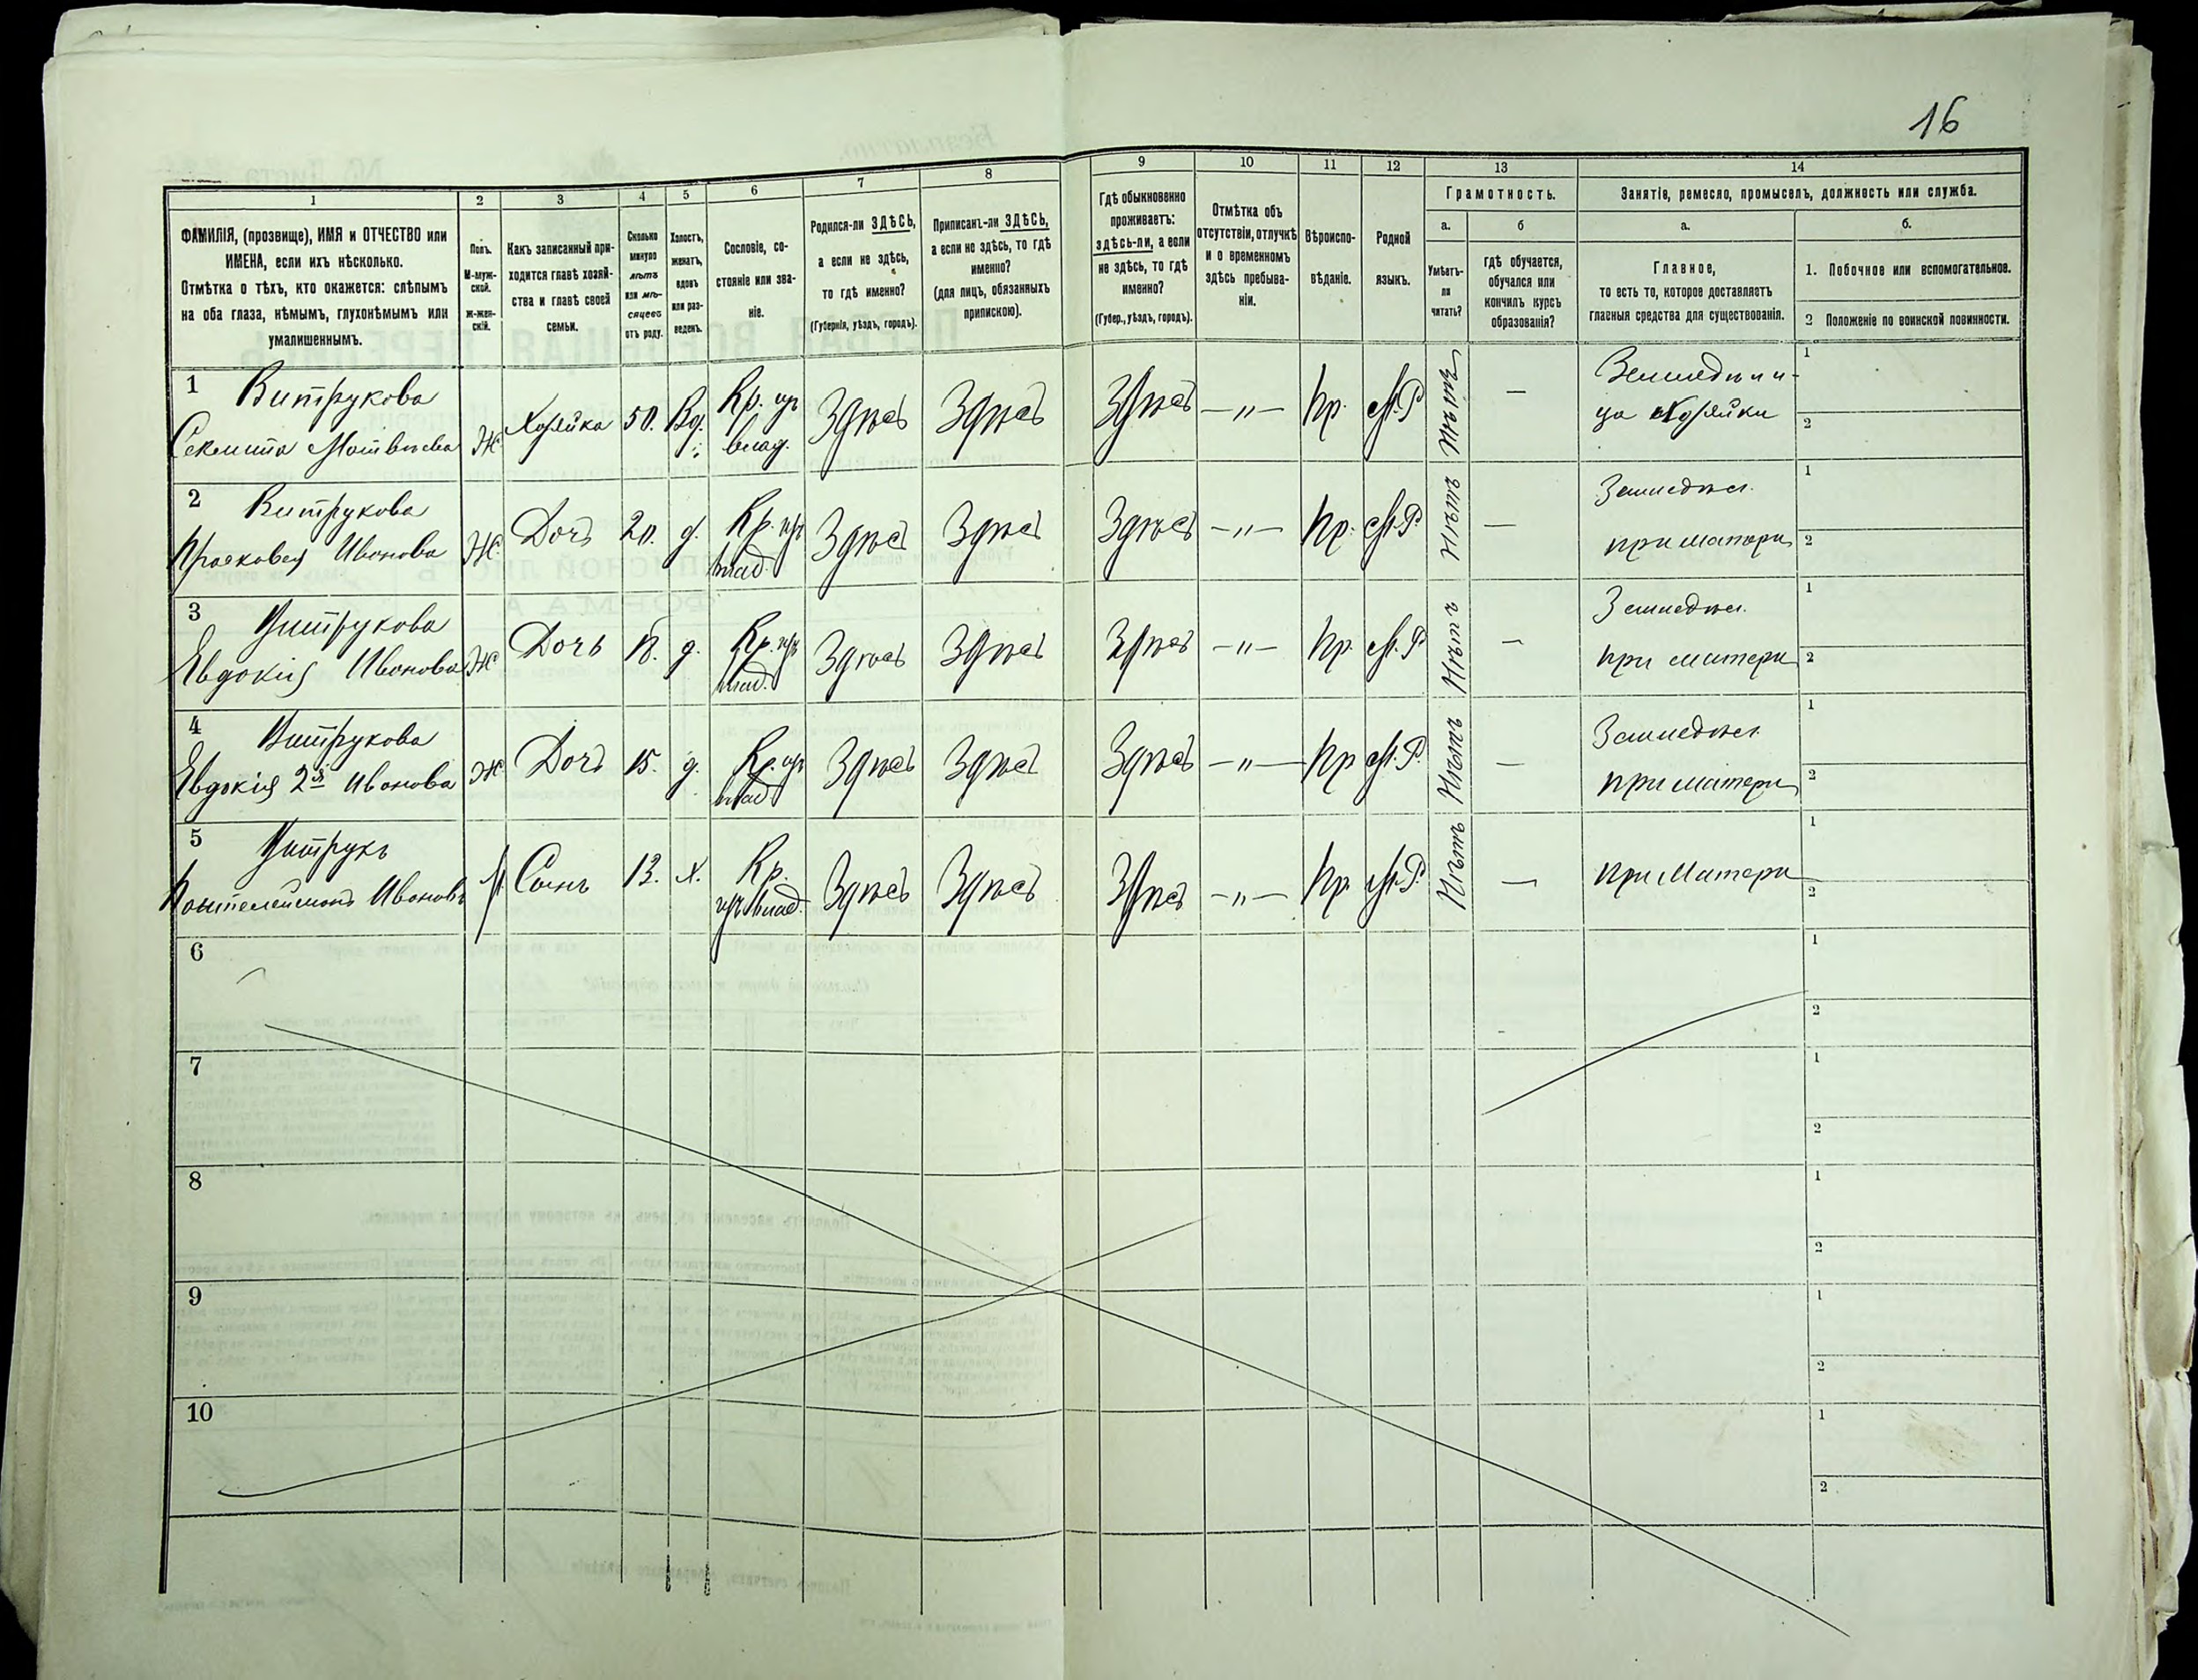 16
1
2
3
4
5
6
7
8
9
10
11
12
13
14
ФАМИЛІЯ, (прозвище), ИМЯ и ОТЧЕСТВО или
ИМЕНА, если ихъ нѣсколько.
Отмѣтка о тѣхъ, кто окажется: слѣпымъ
на оба глаза, нѣмымъ, глухонѣмымъ или
умалишеннымъ.
Полъ.
М-муж-
ской.
Ж-жен-
скій.
Какъ записанный при-
ходится главѣ хозяй-
ства и главѣ своей
семьи.
Сколько
минуло
лѣтъ
или мѣ-
сяцевъ
отъ роду.
Холостъ,
женатъ,
вдовъ
или раз-
веденъ.
Сословіе, со-
стояніе или зва-
ніе.
Родился-ли ЗДѢСЬ,
а если не здѣсь,
то гдѣ именно?
(Губернія, уѣздъ, городъ).
Приписанъ-ли ЗДѢСЬ,
а если не здѣсь, то гдѣ
именно?
(для лицъ, обязанныхъ
припискою).
Гдѣ обыкновенно
проживаетъ:
здѣсь-ли, а если
не здѣсь, то гдѣ
именно?
(Губер., уѣздъ, городъ).
Отмѣтка объ
отсутствіи, отлучкѣ
и о временномъ
здѣсь пребыва-
ніи.
Вѣроиспо-
вѣданіе.
Родной
языкъ.
Грамотность.
а.
Умѣетъ-
ли
читать?
б
гдѣ обучается,
обучался или
кончилъ курсъ
образованія?
Занятіе, ремесло, промыселъ, должность или служба.
а.
Главное,
то есть то, которое доставляетъ
главныя средства для существованія.
б.
1. Побочное или вспомогательное.
2 Положеніе по воинской повинности.
1 Витрукова
Секлита Матвѣева
Ж
Хозяйка
50.
Вд.
Кр. изъ
влад.
Здѣсь
Здѣсь
Здѣсь
—„—
Пр.
М.Р.
Нѣтъ
—
Хозяйка
1
2
2 Витрукова
Прасковья Иванова
Ж.
Дочь
20.
д.
Кр. изъ
влад.
Здѣсь
Здѣсь
Здѣсь
—„—
Пр.
М.Р.
Нѣтъ
—
Земледѣл.
при матери
1
2
3 Витрукова
Евдокія Иванова
Ж
Дочь
18.
д.
Кр. изъ
влад.
Здѣсь
Здѣсь
Здѣсь
—„—
Пр.
М.Р.
Нѣтъ
—
Земледѣл.
при матери
1
2
4 Витрукова
Евдокія 2я Иванова
Ж
Дочь
15.
д.
Кр. изъ
влад
Здѣсь
Здѣсь
Здѣсь
—„—
Пр
М.Р.
Нѣтъ
—
Земледѣл.
при матери
1
2
5 Витрукъ
Пантелеймонъ Ивановъ
М.
Сынъ
13.
х.
Кр.
изъ влад.
Здѣсь
Здѣсь
Здѣсь
—„—
Пр.
М.Р.
Нѣтъ
—
при Матери
1
2
6
1
2
7
1
2
8
1
2
9
1
2
10
1
2